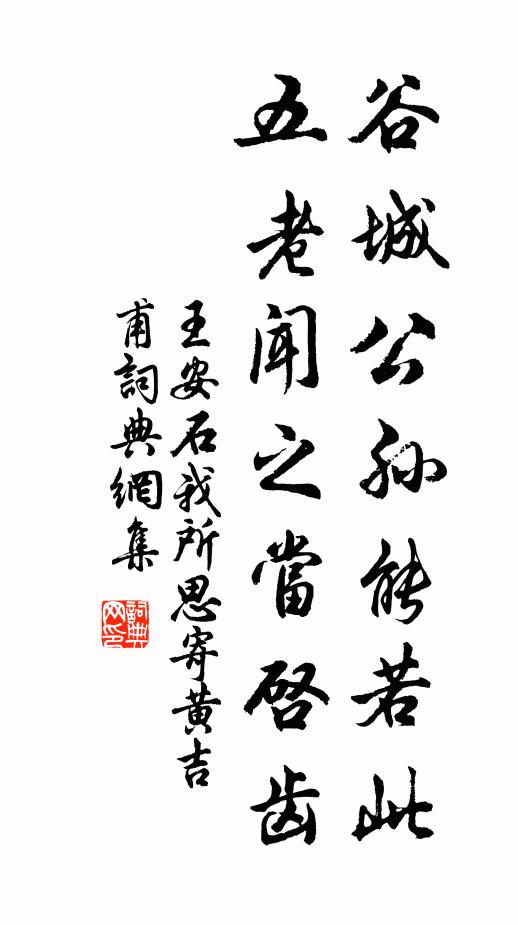 谷城公孙能若此
五老闻之當啓齿
王安石我所思寄黄吉
甫詞典網集
詞典网印